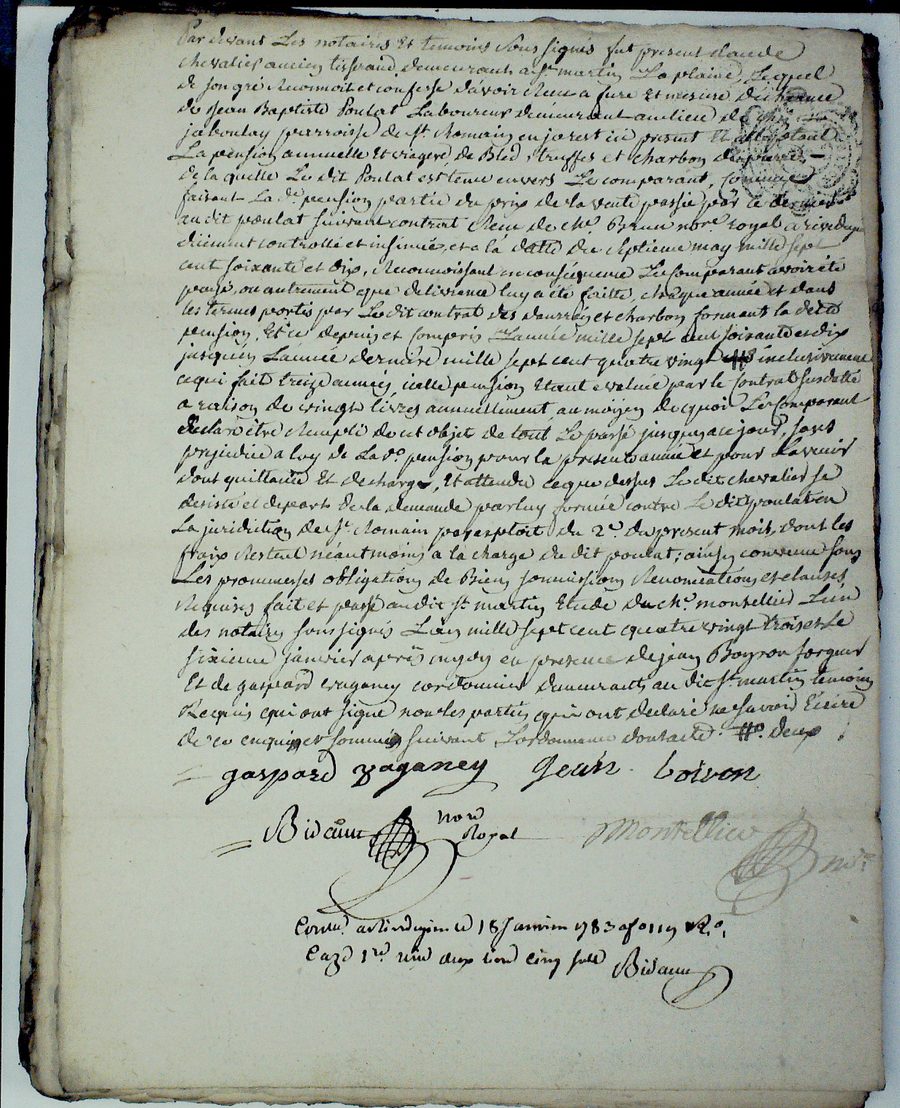 Par devant Les notaires Et temoins sous signés fut present claude
chevalier ancien tisserand, demeurant a st martin La plaine, Lequel
de son gré Reconnoit et confesse davoir Reçu a fure Et mesure décheance
de Jean Baptiste Poulat Laboureur demeurant au lieu de
jaboulay parroisse de st Romain en jarest ici present Et acceptant
La pension annuelle Et viagere de Bled, truffes et charbon de pierre
de la quelle Le dit Poulat est tenu envers Le comparant, comme
faisant La de pension partie du prix de la vente passée par ce dernier
au dit poulat suivant contrat Reçu de me Brun nore royal a rivedegier
düement controllé et insinué, et a la datte du septieme may mille sept
cent soixante et dix, Reconnoissant en consequence Le comparant avoir été
payé, ou autrement que delivrance luy a été faitte, chaque année et dans
les termes portés par Le dit contrat des danrées et charbon formant la ditte
pension, Et ce depuis et compris Lannée mille sept cent soixante et dix
jusques Lannée derniere mille sept cent quatre vingt inclusivement
ce qui fait treize années, icelle pension Etant evaluée par le Contrat susdatté
a raison de vingt livres annuellement, au moyen de quoi Le Comparant
declare être Rempli de cet objet de tout Le passé jusques a ce jour, sans
prejudice a luy de La de pension pour la presente année et pour Lavenir
dont quittance Et decharge, Et attendu ce que dessus Le dit chevalier se
desiste et depart de la demande par luy formée contre Le dit poulat en
La juridiction de st Romain par exploit du 2e du present mois, dont les
frais Restent néantmoins a la charge du dit poulat; ainsy convenu sous
Les prommesses obligations de Biens soumissions Renonciations et clauses
Requises fait et passé au dit st martin Etude du me montellier Lun
des notaires soussignés Lan mille sept cent quatre vingt trois et Le
sixieme janvier apres midy en presence de jean Boyron forgeur
Et de gaspard vaganey cordonnier demeurants au dit st martin temoins
Requis qui ont signé non les parties qui ont declaré ne savoir Ecrire
de ce enquis et sommés suivant Lordonnance
gaspard vaganey Jean boiron
Bidaun nore Royal
Montellier nore
Contlé a rivedegier le 18 Janvier 1783
Bidaun